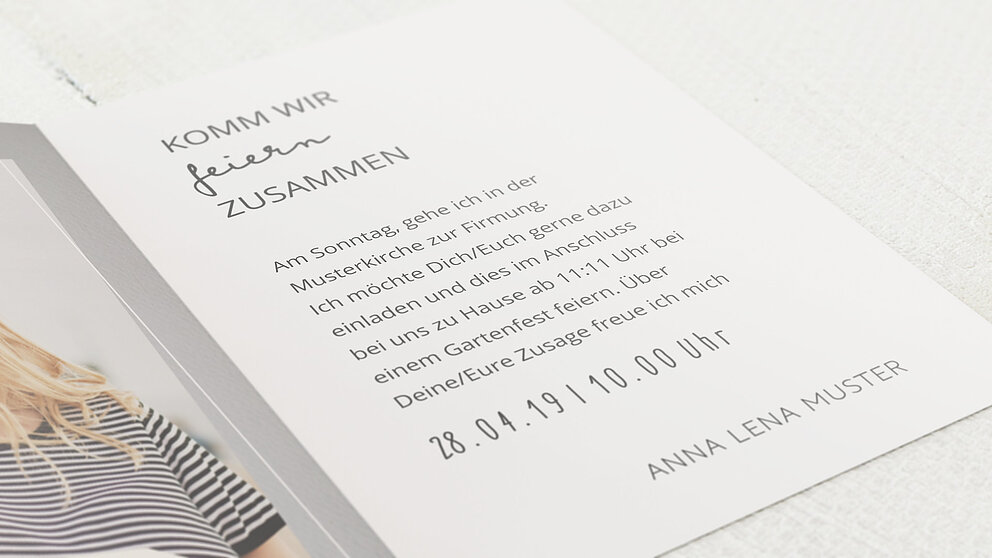 KOMM WIR
feiern
ZUSAMMEN
Am Sonntag, gehe ich in der
Musterkirche zur Firmung.
Ich möchte Dich/Euch gerne dazu
einladen und dies im Anschluss
bei uns zu Hause ab 11:11 Uhr bei
einem Gartenfest feiern. Über
Deine/Eure Zusage freue ich mich
28.04.19 | 10.00 Uhr
ANNA LENA MUSTER